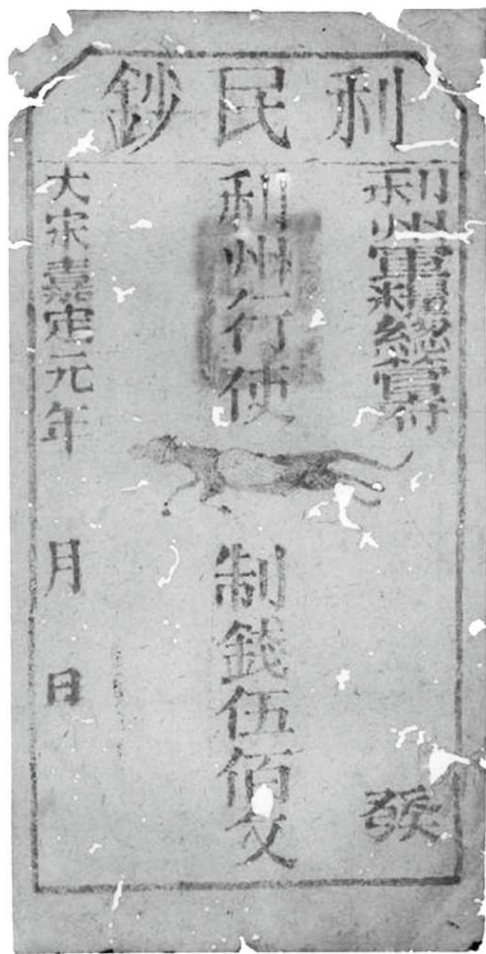 利民鈔
利州軍總管府 發
利州行使
制錢伍佰文
大宋嘉定元年 月 日